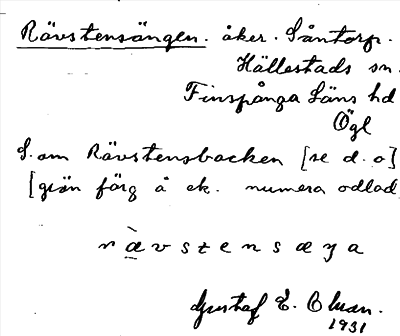 Rävstensängen. åker. Såntorp.
Hällestads sn.
Finspånga Läns hd
Ögl
S. om Rävstensbacken [se d. o]
[grön färg å ek. numera odlad
r æ̀ v s t e n s æ ŋ a
Gustaf E. Olsson.
1931